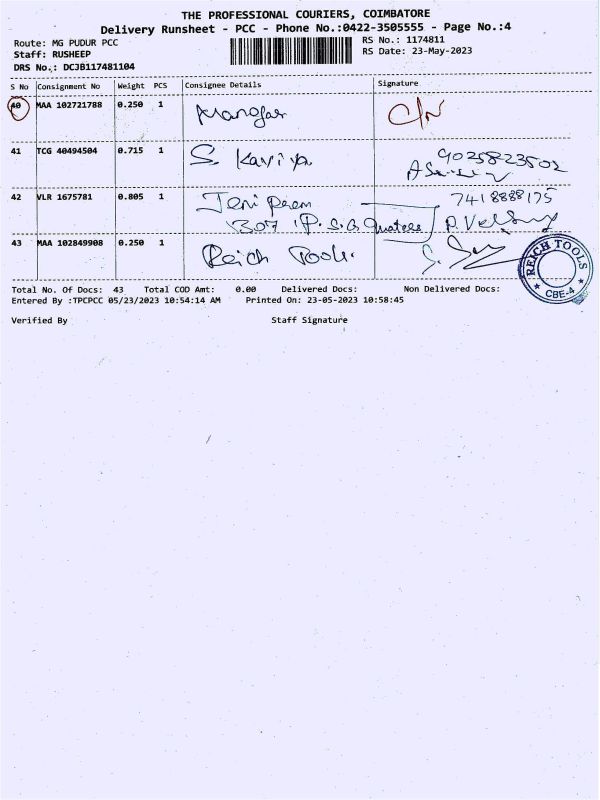 THE PROFESSIONAL COURIERS, COIMBATORE
Delivery Runsheet - PCC - Phone No.:0422-3505555 - Page No.:4
Route: MG PUDUR PCC
Staff: RUSHEEP
DRS No.: DCJB117481104
RS No.: 1174811
RS Date: 23-May-2023
S No Consignment No Weight PCS Consignee Details Signature
40 MAA 102721788 0.250 1 C/N
41 TCG 40494504 0.715 1 S. Kaviya 9025823502
42 VLR 1675781 0.805 1 Jeni 7418888175
1307 P.S.G
43 MAA 102849908 0.250 1 Reich Tools.
REICH TOOLS
★ CBE-4 ★
Total No. Of Docs: 43 Total COD Amt: 0.00 Delivered Docs: Non Delivered Docs:
Entered By :TPCPCC 05/23/2023 10:54:14 AM Printed On: 23-05-2023 10:58:45
Verified By Staff Signature